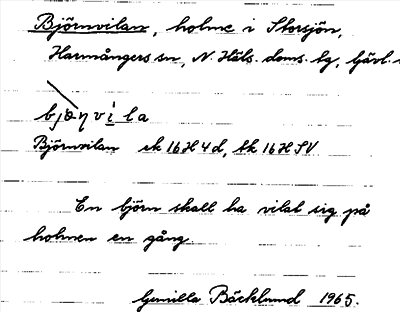 Björnvilan, holme i Storsjön,
Harmångers sn, N. Häls. doms. bg, Gävl.
bjɷ̀ṇvila
Björnvilan ek 16H4d, tk 16HSV
En björn skall ha vilat sig på
holmen en gång.
Gunilla Bäcklund 1965.